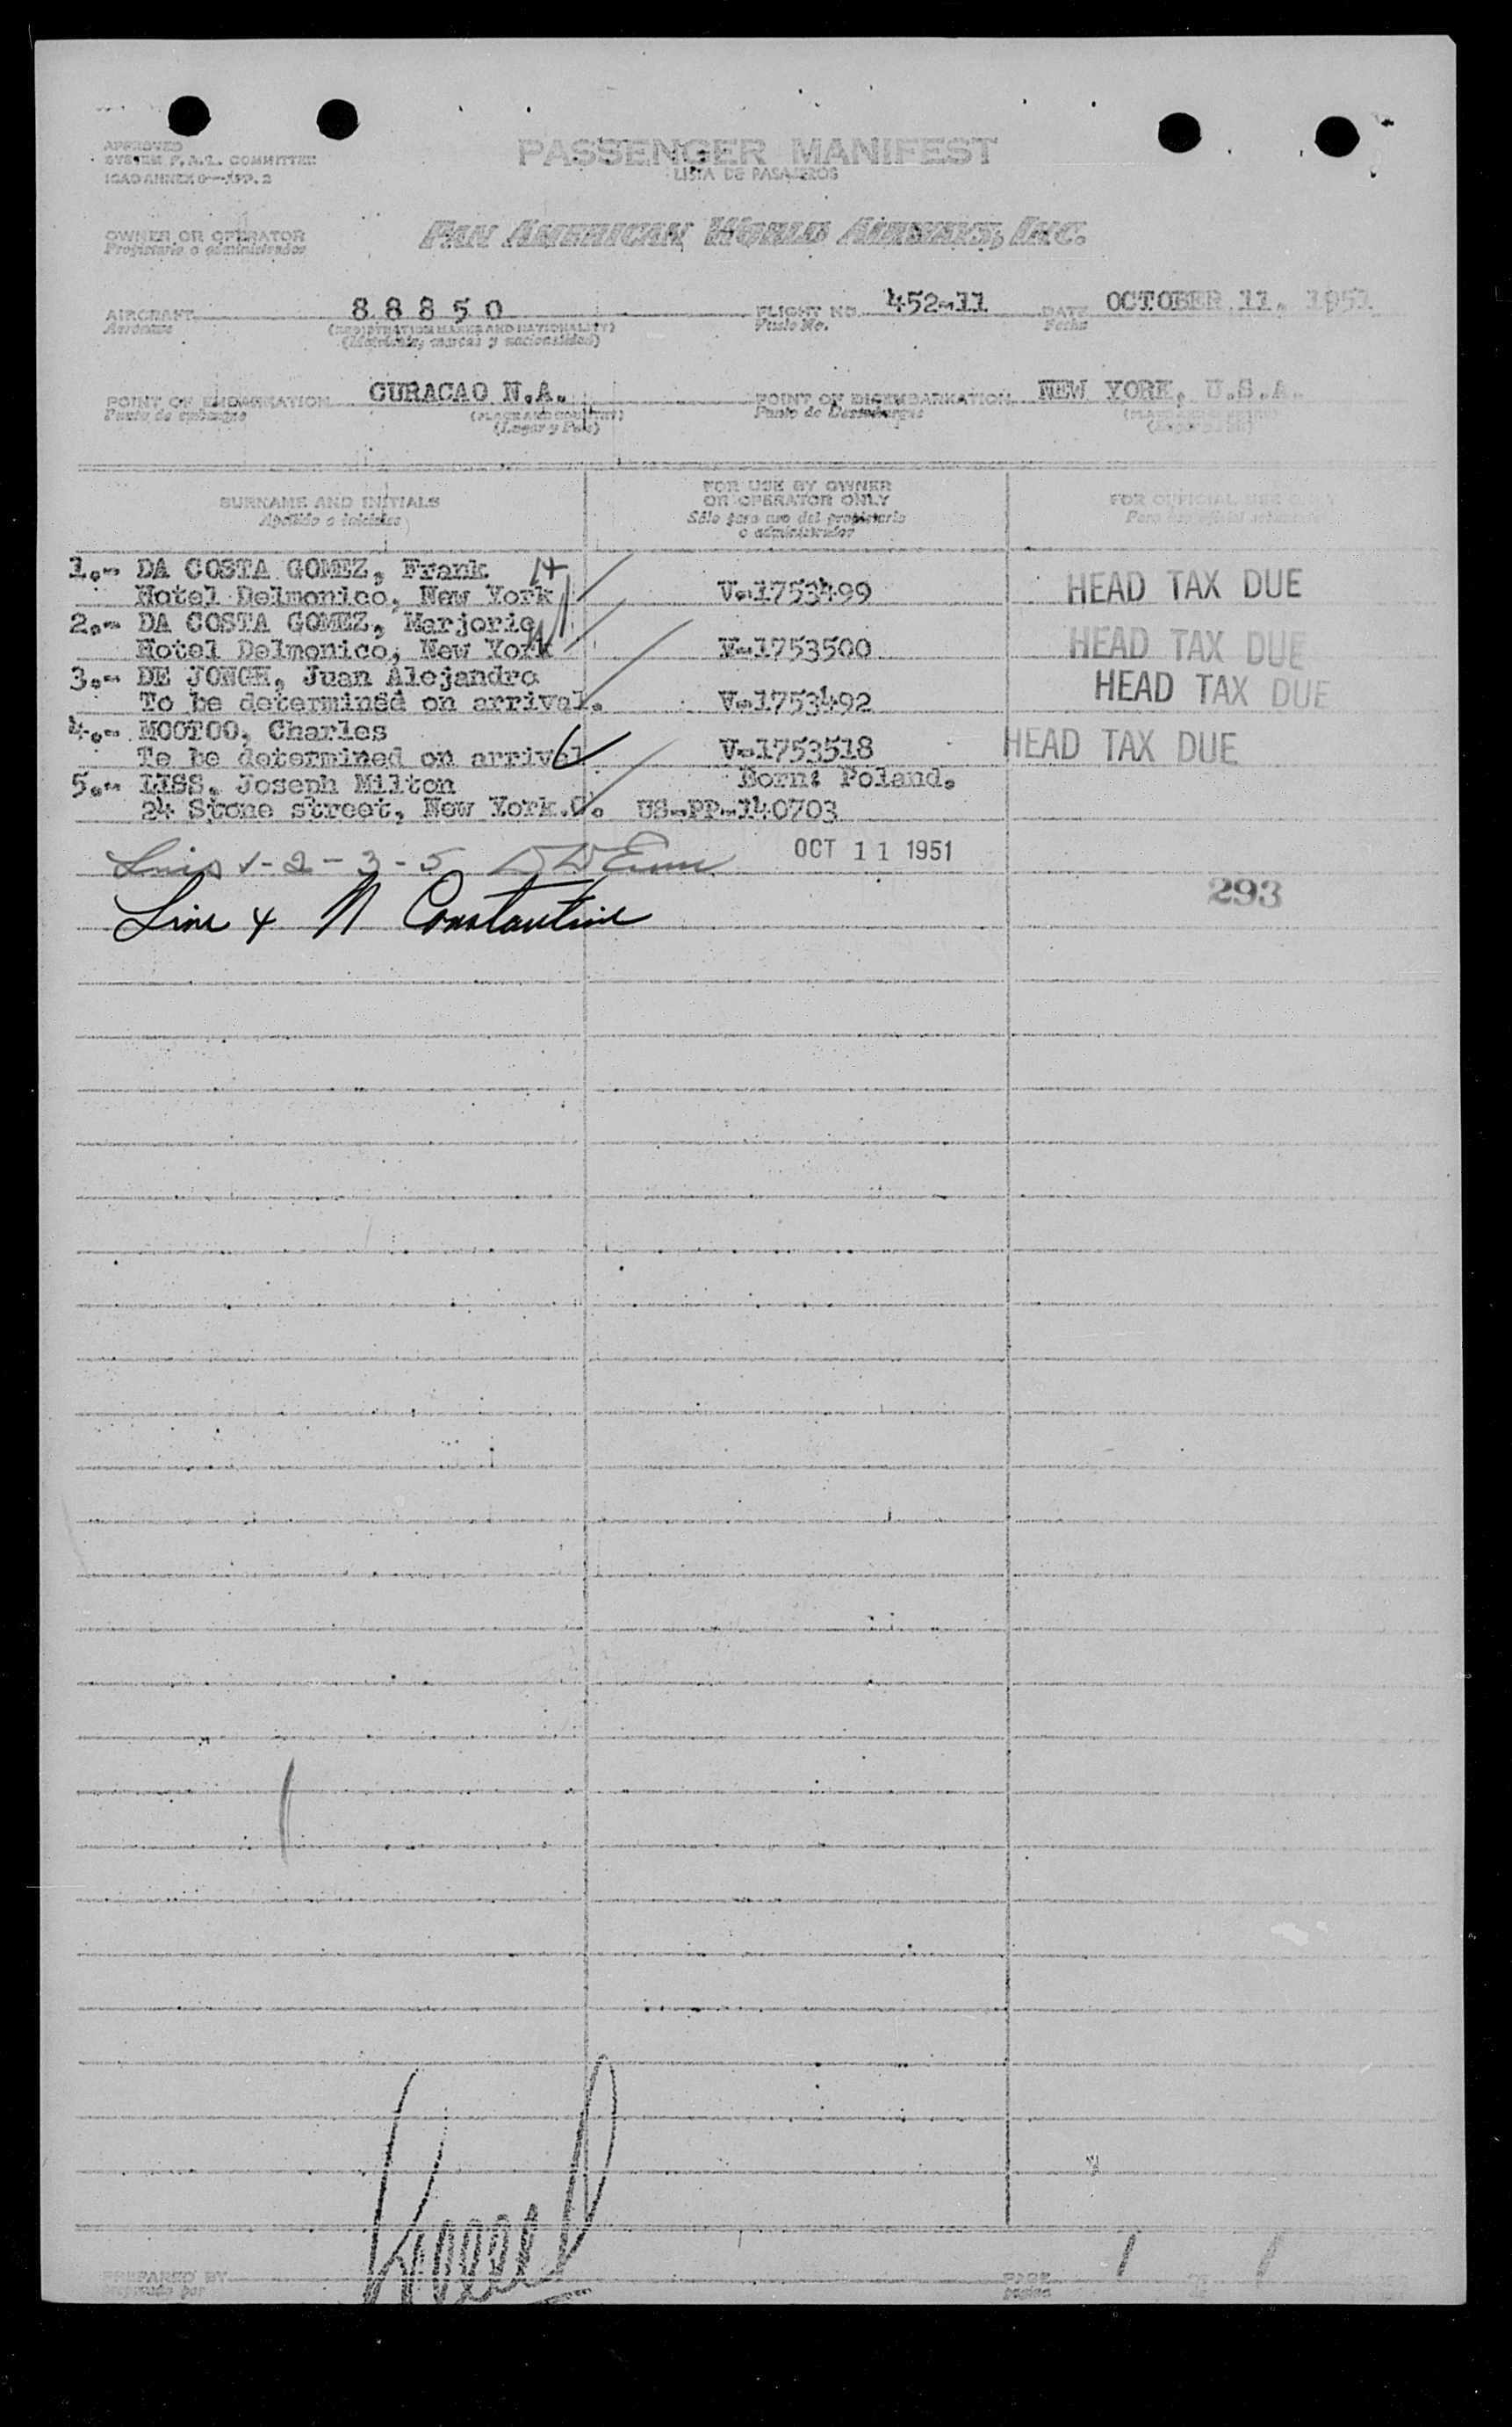 APPROVED
SYSTEM F.A.L. COMMITTEE
ICAO ANNEX 9—APP. 2
PASSENGER MANIFEST
LISTA DE PASAJEROS
OWNER OR OPERATOR
Propietario o administrador
PAN AMERICAN WORLD AIRWAYS, INC.
AIRCRAFT 88850 FLIGHT NO. 452-11 DATE OCTOBER 11. 1951
Aeronave (REGISTRATION MARKS AND NATIONALITY) Vuelo No. Fecha
(Matrícula, marcas y nacionalidad)
POINT OF EMBARKATION CURACAO N.A. POINT OF DISEMBARKATION NEW YORK, U.S.A.
Punto de embarque (PLACE AND COUNTRY) Punto de Desembarque
(Lugar y País)
SURNAME AND INITIALS
Apellido e iniciales
FOR USE BY OWNER
OR OPERATOR ONLY
Sólo para uso del propietario
o administrador
FOR OFFICIAL USE ONLY
Para uso oficial solamente
1.- DA COSTA GOMEZ, Frank
Hotel Delmonico, New York V-1753499 HEAD TAX DUE
2.- DA COSTA GOMEZ, Marjorie
Hotel Delmonico, New York V-1753500 HEAD TAX DUE
3.- DE JONGH, Juan Alejandro
To be determined on arrival. V-1753492 HEAD TAX DUE
4.- MOOTOO, Charles
To be determined on arrival V-1753518 HEAD TAX DUE
5.- LISS, Joseph Milton Born: Poland.
24 Stone street, New York.C. US-PP-140703
Lines 1-2-3-5 OCT 11 1951
293
Line 4 N Constantine
PREPARED BY PAGE 1 1
Preparado por página